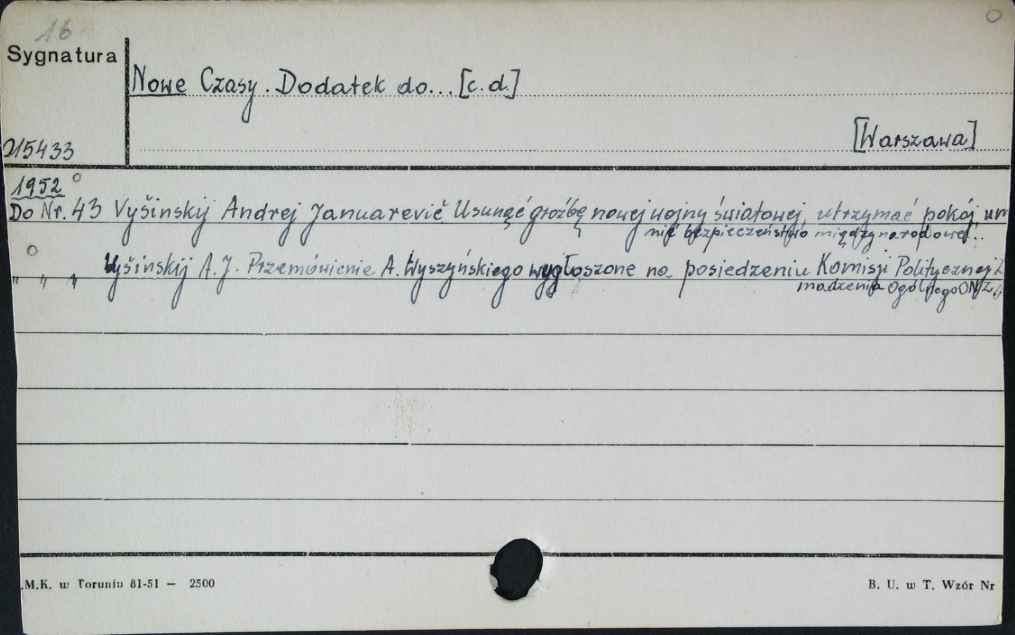 16
Sygnatura
Nowe Czasy. Dodatek do... [c.d.]
[Warszawa]
215433
1952
Do Nr. 43 Vyšinskij Andrej Januarevič Usunąć groźbę nowej wojny światowej, utrzymać pokój um
nić bezpieczeństwo międzynarodowe!..
" " " Vyšinskij A. J. Przemówienie A. Wyszyńskiego wygłoszone na posiedzeniu Komisji Politycznej Z
madzenia Ogólnego ONZ
.M.K. w Toruniu 81-51 — 2500
B. U. w T. Wzór Nr